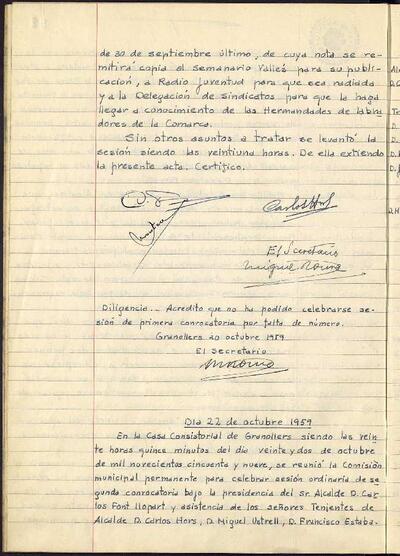 de 30 de septiembre último, de cuya nota se re-
mitirá copia al semanario Vallés para su publi-
cación, a Radio Juventud para que sea radiada
y a la Delegación de Sindicatos para que la haga
llegar a conocimiento de las Hermandades de labra
dores de la Comarca.
Sin otros asuntos a tratar se levantó la
sesión siendo las veintiuna horas. De ella extiendo
la presente acta. Certifico.
Carlos Hors
El Secretario
Diligencia.- Acredito que no ha podido celebrarse se-
sión de primera convocatoria por falta de número.
Granollers 20 octubre 1959
El Secretario
Día 22 de octubre 1959
En la Casa Consistorial de Granollers siendo las vein
te horas quince minutos del día veinte y dos de octubre
de mil novecientos cincuenta y nueve, se reunió la Comisión
municipal permanente para celebrar sesión ordinaria de se
gunda convocatoria bajo la presidencia del Sr Alcalde D. Car
los Font Llopart y asistencia de los señores Tenientes de
Alcalde D. Carlos Hors, D. Miguel Ustrell, D. Francisco Estaba-